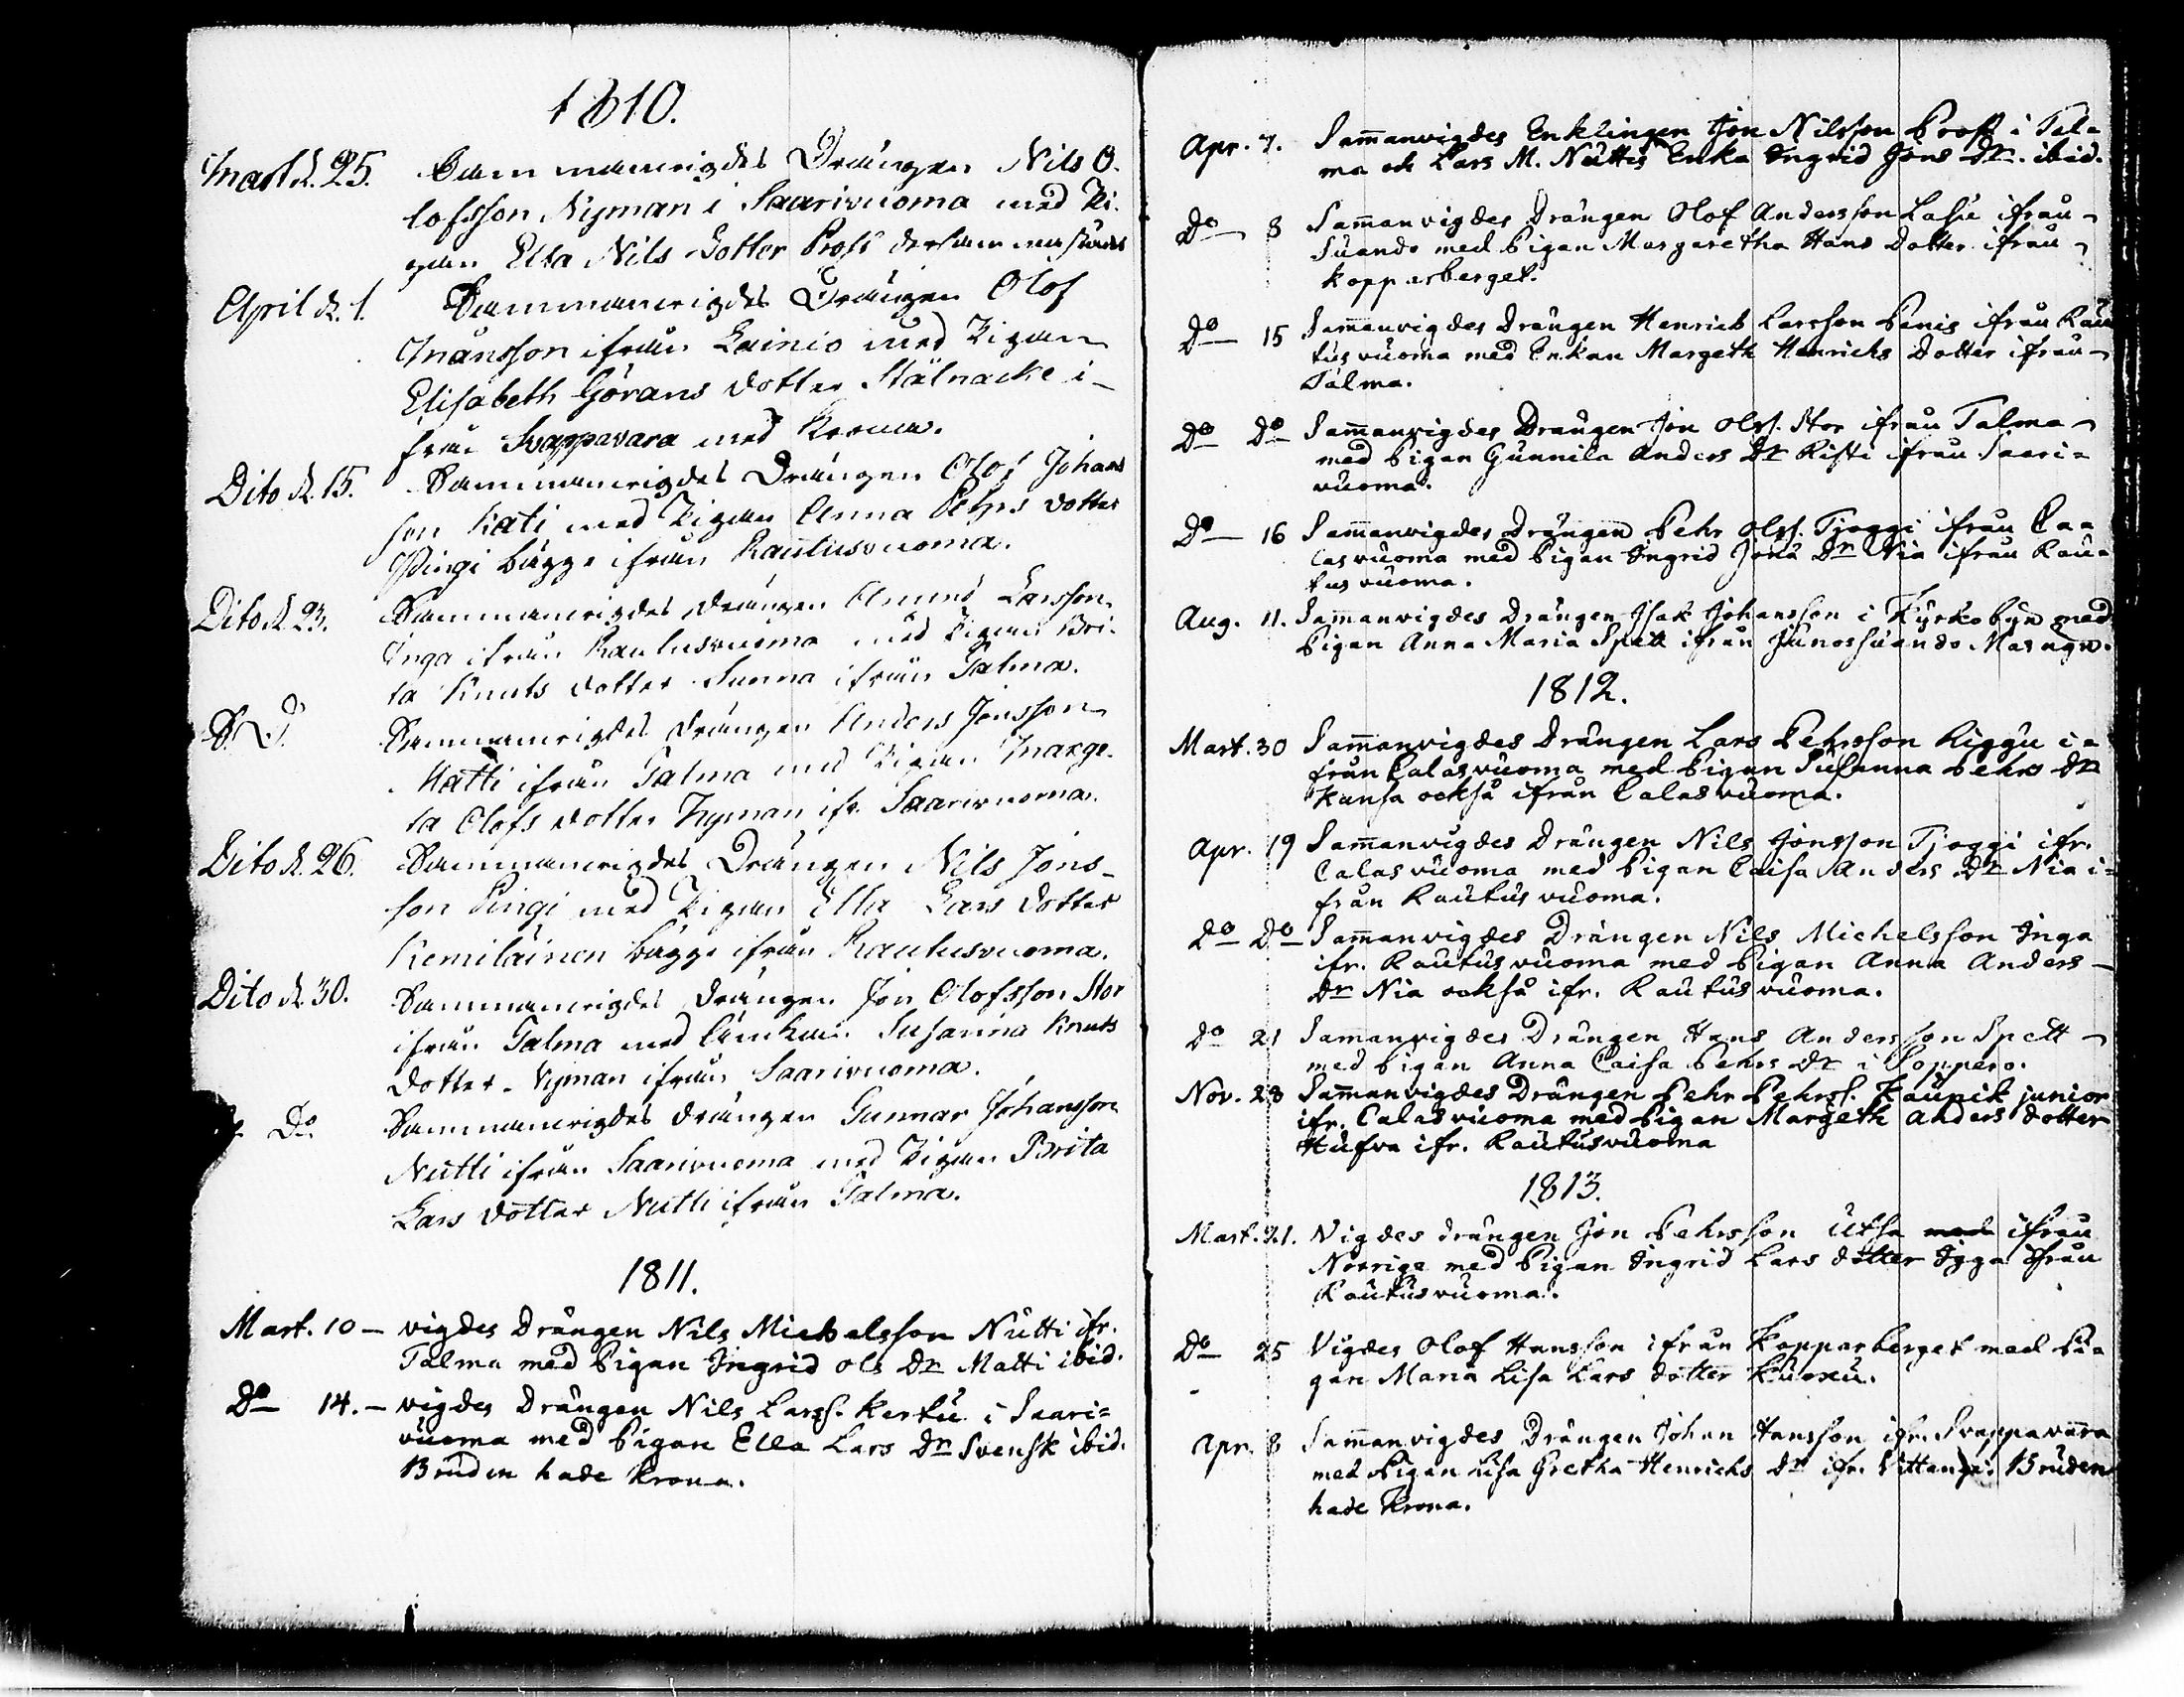 1810.
Mart d. 25. Sammanvigdes Drängen Nils O-
lofsson Nyman i Saarivuoma med Pi-
gan Ella Nils Dotter Prost dersammastädes
April d. 1. Sammanvigdes Drängen Olof
Månsson ifrån Lainio med Pigan
Elisabeth Görans dotter Stålnacke i-
från Svappavara med Krona.
Dito d. 15. Sammanvigdes Drängen Olof Johans
son Kati med Pigan Anna Pehrs dotter
Pingi bägge ifrån Rautusvuoma.
Dito d. 23. Sammanvigdes drängen Amund Larsson
Inga ifrån Rautusvuoma med Pigan Bri-
ta Knuts dotter Sunna ifrån Talma.
D. D. Sammanvigdes drängen Anders Jonsson
Matti ifrån Talma med Pigan Marge-
ta Olofs dotter Nyman ifr. Saarivuoma.
Dito d. 26. Sammanvigdes Drängen Nils Jons-
son Pingi med Pigan Ella Lars Dotter
Kemiläinen bägge ifrån Rautusvuoma.
Dito d. 30. Sammanvigdes drängen Jon Olofsson Stor
ifrån Talma med Änkan Susanna Knuts
dotter Nyman ifrån Saarivuoma.
Do Sammanvigdes drängen Gunnar Johansson
Nutti ifrån Saarivuoma med Pigan Brita
Lars dotter Nutti ifrån Talma.
1811.
Mart. 10 – vigdes Drängen Nils Michelsson Nutti ifr.
Talma med Pigan Ingrid Ols Dr Matti ibid.
Do 14. – vigdes Drängen Nils Larss. Kertu i Saari=
vuoma med Pigan Ella Lars Dr Svensk ibid.
Bruden hade krona.
Apr. 7. Sammanvigdes Enklingen Jon Nilsson Prost i Tal=
ma och Lars M. Nuttis Enka Ingrid Jons Dr. ibid.
Do 8 Sammanvigdes Drängen Olof Andersson Lasu ifrån
Suando med Pigan Margaretha Hans Dotter ifrån
kopparberget.
Do 15 Sammanvigdes Drängen Henrich Larsson Panis ifrån Rau
tusvuoma med Enkan Margeth Henrichs Dotter ifrån
Talma.
Do Do Sammanvigdes Drängen Jon Olss. Stor ifrån Talma
med Pigan Gunnila Anders Dr Risti ifrån Saari=
vuoma.
Do 16 Sammanvigdes Drängen Pehr Olss. Tjoggi ifrån Ca=
lasvuoma med Pigan Ingrid Jons Dr Nia ifrån Rau=
tusvuoma.
Aug. 11. Sammanvigdes Drängen Isak Johansson i Kyrkobyn med
Pigan Anna Maria Spett ifrån Junossuando Masugn.
1812.
Mart. 30 Sammanvigdes Drängen Lars Pehrsson Riggu i=
från Calasvuoma med Pigan Susanna Pehrs Dr
Kansa också ifrån Calasvuoma.
Apr. 19 Sammanvigdes Drängen Nils Jonsson Tjoggi ifr.
Calasvuoma med Pigan Caisa Anders Dr Nia i=
från Rautusvuoma.
Do Do Sammanvigdes Drängen Nils Michelsson Inga
ifr. Rautusvuoma med Pigan Anna Anders
Dr Nia också ifr. Rautusvuoma.
Do 21 Sammanvigdes Drängen Hans Andersson Spett
med Pigan Anna Caisa Pehrs Dr i Soppero.
Nov. 28 Sammanvigdes Drängen Pehr Pehrss. Kaupik junior
ifr. Calasvuoma med Pigan Margeth Anders dotter
Hufva ifr. Rautusvuoma
1813.
Mart. 21. Vigdes drängen Jon Pehrsson Utsa med ifrån
Norrige med Pigan Ingrid Lars dotter Igga ifrån
Rautusvuoma.
Do 25 Vigdes Olof Hansson ifrån Kopparberget med Pi=
gan Maria Lisa Lars dotter Kurku.
Apr. 8 Sammanvigdes Drängen Johan Hansson ifr. Svappavara
med Pigan Lisa Gretha Henrichs Dr ifr. Vittangi. Bruden
hade Krona.